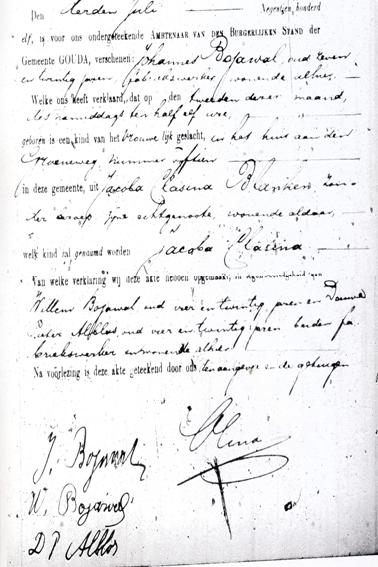 Den derden Juli Negentien honderd
elf, is voor ons ondergeteekende AMBTENAAR VAN DEN BURGERLIJKEN STAND der
Gemeente GOUDA, verschenen: Johannes Bojawal, oud zeven
en twintig jaren, fabriekswerker, wonende alhier,
Welke ons heeft verklaard, dat op den tweeden dezer maand,
des namiddags ten half elf ure,
geboren is een kind van het vrouwelijk geslacht, in het huis aan den
nummer
in deze gemeente, uit Jacoba Clasina Blanken, zon-
der beroep zijne echtgenoote, wonende aldaar,
welk kind zal genaamd worden Jacoba Clasina
Van welke verklaring wij deze akte hebben opgemaakt, in tegenwoordigheid van
Willem Bojawal oud vier en twintig jaren en Douwe
Pieter Alblas, oud vier en twintig jaren beiden fa-
briekswerker en wonende alhier
Na voorlezing is deze akte geteekend door ons, den aangever en de getuigen
J. Bojawal
W. Bojawal
D P Alblas